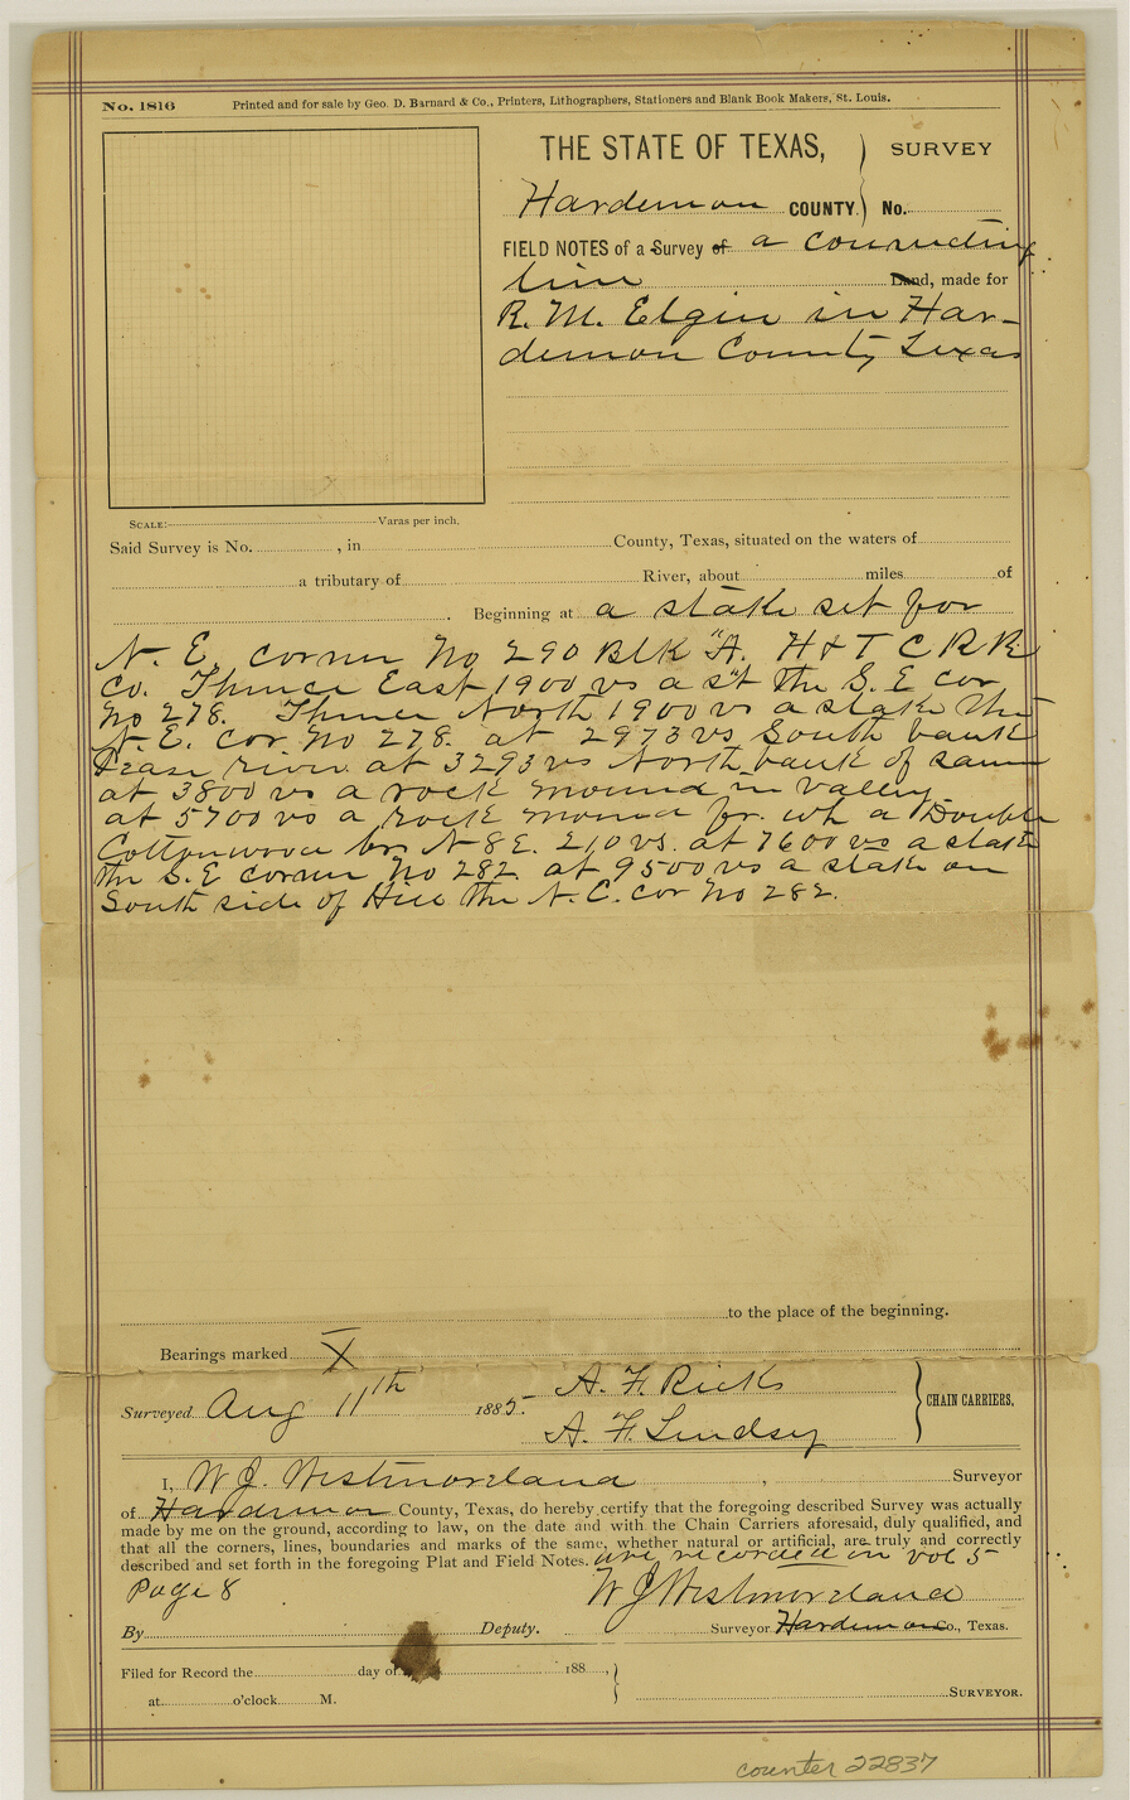 No. 1816 Printed and for sale by Geo. D. Barnard & Co., Printers, Lithographers, Stationers and Blank Book Makers, St. Louis.
THE STATE OF TEXAS, SURVEY
Hardeman COUNTY. No.
FIELD NOTES of a Survey of a connecting
line Land, made for
R. M. Elgin in Har-
deman County Texas
SCALE: Varas per inch.
Said Survey is No. , in County, Texas, situated on the waters of
a tributary of River, about miles of
Beginning at a stake set for
N. E. corner No 290 Blk "A. H & T C R R
Co. Thence East 1900 vs a st the S. E cor
No 278. Thence North 1900 vs a stake the
N. E. cor. No 278. at 2973 vs South bank
Pease river at 3293 vs North bank of same
at 3800 vs a rock mound in valley
at 5700 vs a rock mound fr. wh a Double
Cottonwood brs N 8 E. 210 vs. at 7600 vs a stake
the S. E corner No 282. at 9500 vs a stake on
South side of Hill the N. E. cor No 282.
to the place of the beginning.
Bearings marked X
Surveyed Aug 11th 1885. A. F. Ricks
A. F. Lindsey CHAIN CARRIERS.
I, W. J. Westmoreland Surveyor
of Hardeman County, Texas, do hereby certify that the foregoing described Survey was actually
made by me on the ground, according to law, on the date and with the Chain Carriers aforesaid, duly qualified, and
that all the corners, lines, boundaries and marks of the same, whether natural or artificial, are truly and correctly
described and set forth in the foregoing Plat and Field Notes. are recorded in vol 5
Page 8 W J Westmoreland
By Deputy. Surveyor Hardeman Co., Texas.
Filed for Record the day of 188 ,
at o'clock M. SURVEYOR.
counter 22837